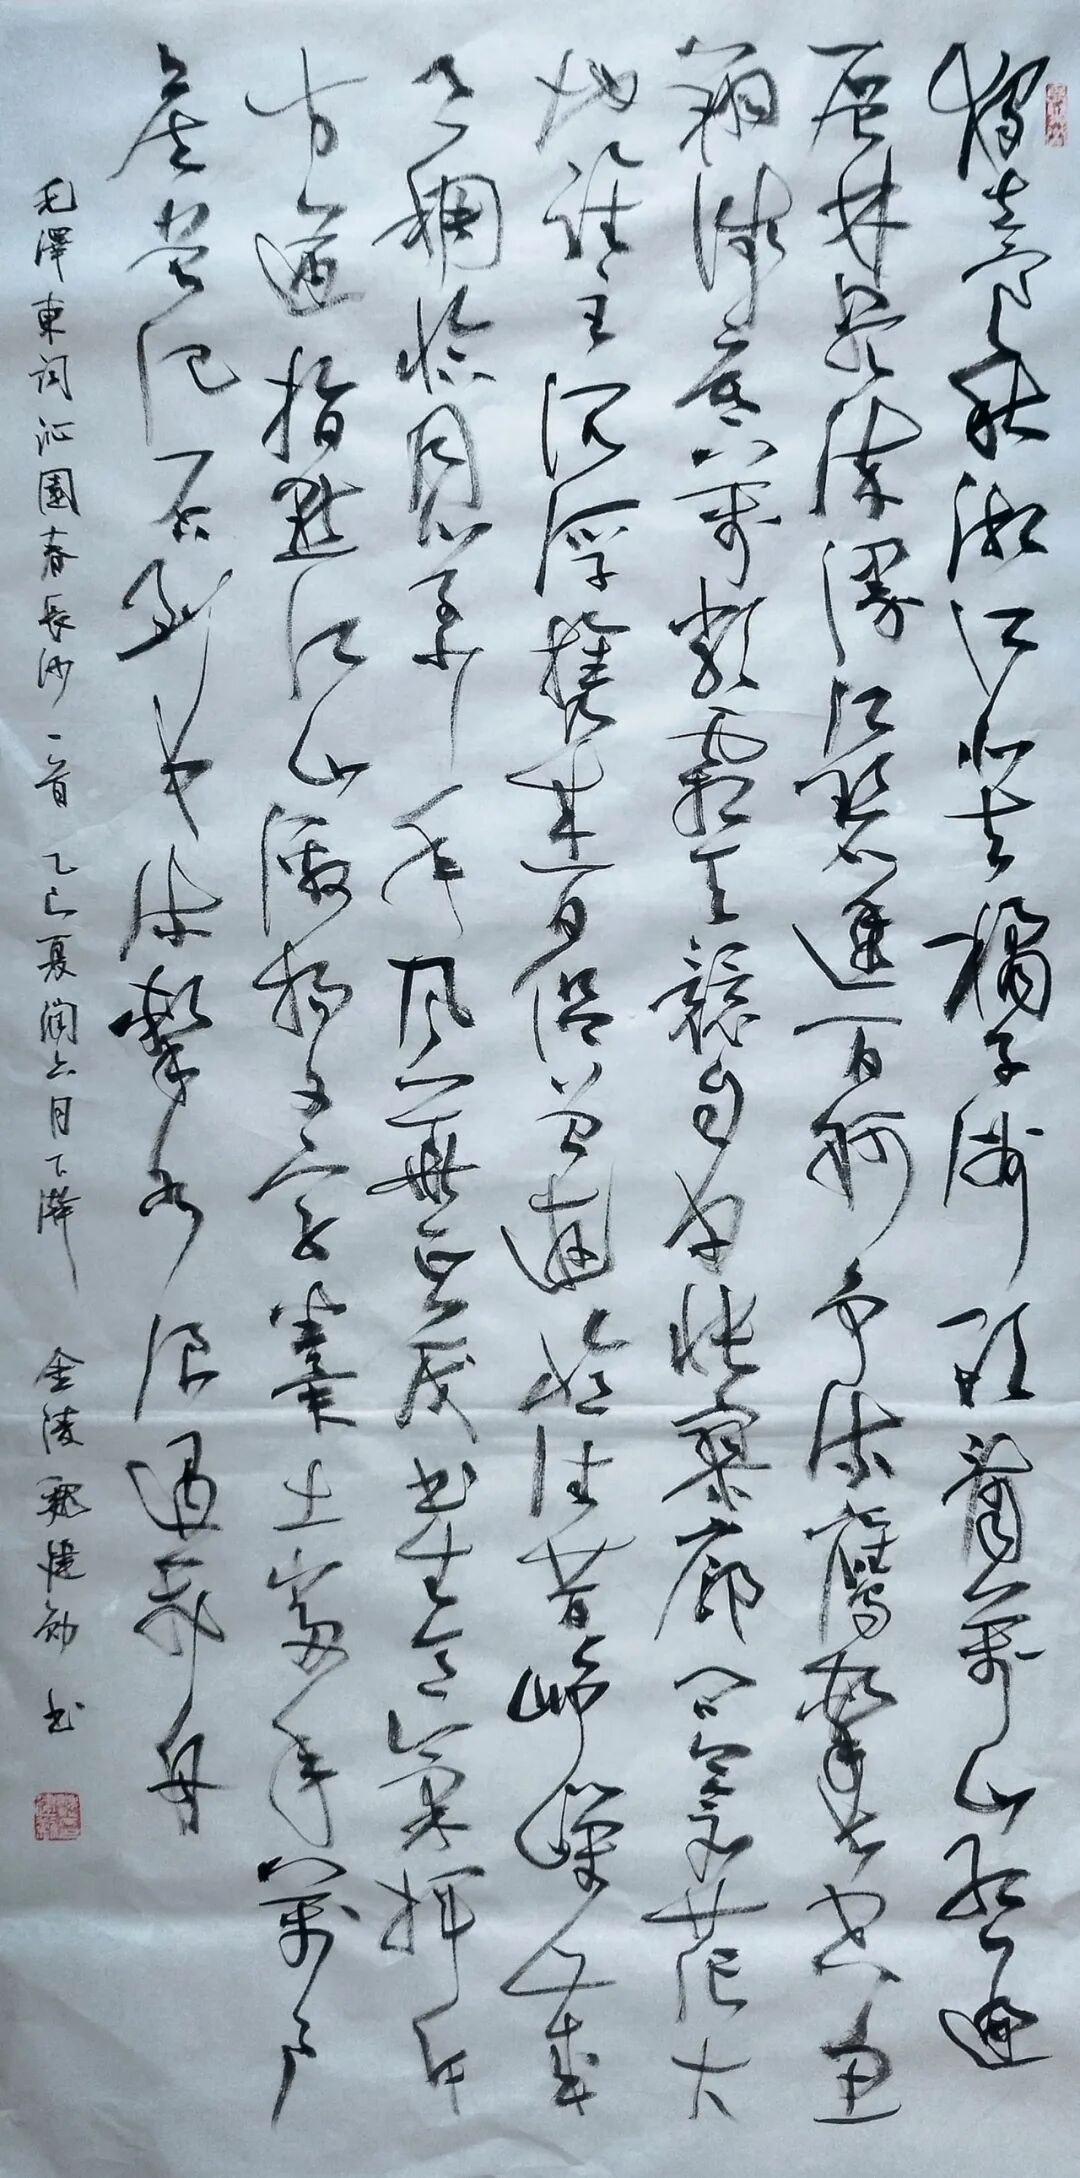 獨立寒秋湘江北去橘子洲頭看萬山紅遍
層林盡染漫江碧透百舸爭流鷹擊長空魚
翔淺底萬類霜天競自由悵寥廓問蒼茫大
地誰主沉浮攜來百侣曾遊憶往昔崢嶸歲
月稠恰同學少年風華正茂書生意氣揮斥
方遒指點江山激揚文字糞土當年萬户
侯曾記否到中流擊水浪遏飛舟
毛澤東詞沁園春長沙一首 乙巳夏閏六月下澣 金陵魏 書